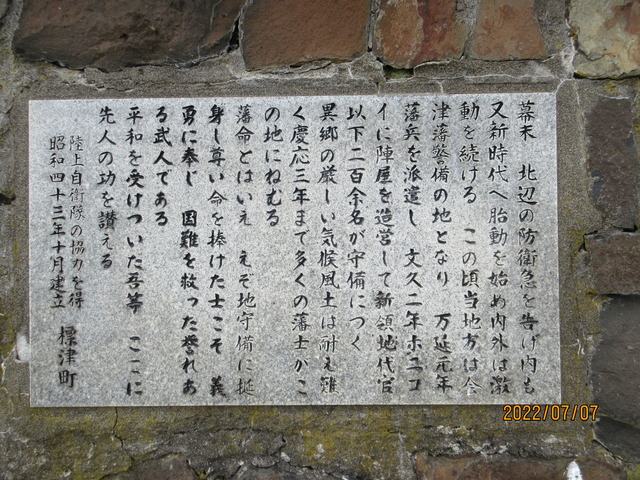 幕末　北辺の防衛急を告げ内も
又新時代へ胎動を始め内外は激
動を続ける　この頃当地方は会
津藩警備の地となり　万延元年
藩兵を派遣し　文久二年ホニコ
イに陣屋を造営して新領地代官
以下二百余名が守備につく
異郷の厳しい気候風土は耐え難
く慶応三年まで多くの藩士がこ
の地にねむる
藩命とはいえ　えぞ地守備に挺
身し尊い命を捧げた士こそ　義
勇に奉じ　国難を救った誉れあ
る武人である
平和を受けついだ吾等　ここに
先人の功を讃える
陸上自衛隊の協力を得
昭和四十三年十月建立　標津町
2022/07/07